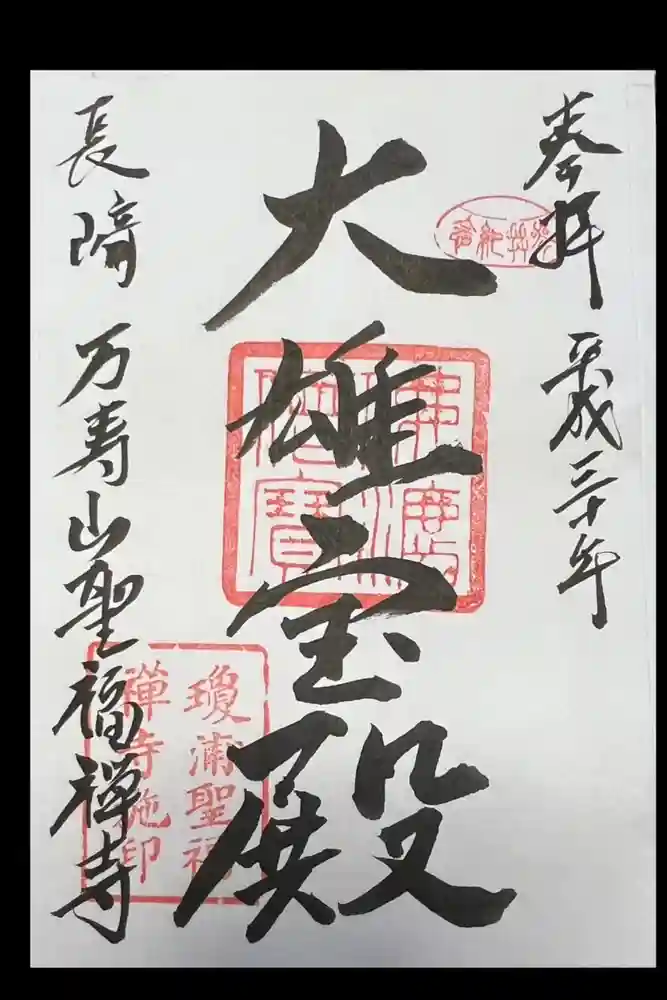 奉拝 平成三十年
大雄宝殿
佛法僧寳
長崎 万寿山聖福禅寺
瓊浦聖福
禅寺施印